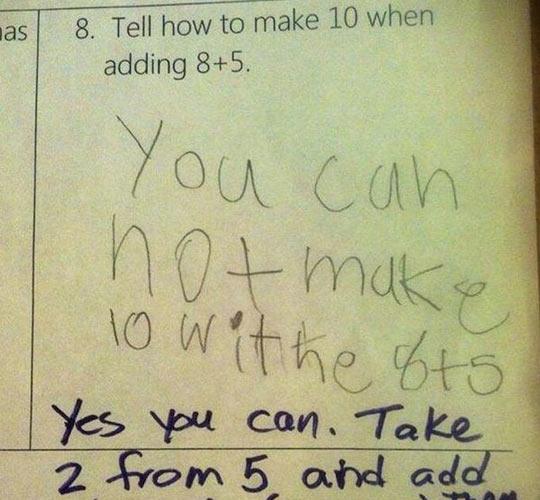 as
8. Tell how to make 10 when
adding 8+5.
You can
not make
10 witthe 8+5
Yes you can. Take
2 from 5 and add